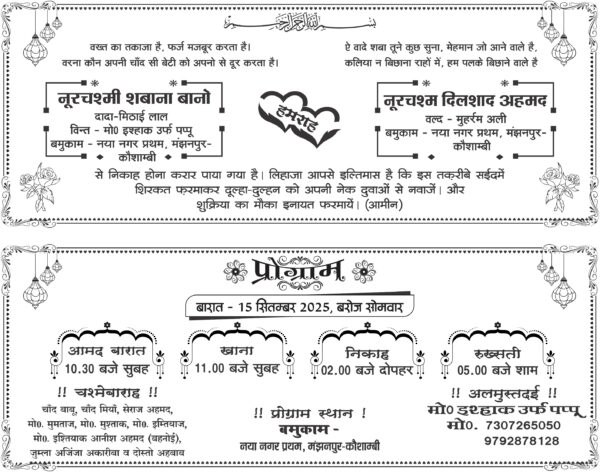 بسم الله الرحمن الرحيم
वख्त का तकाजा है, फर्ज मजबूर करता है।
वरना कौन अपनी चाँद सी बेटी को अपनो से दूर करता है।
ऐ वादे शबा तूने कुछ सुना, मेहमान जो आने वाले है,
कलिया न बिछाना राहों में, हम पलके बिछाने वाले है
नूरचश्मी शबाना बानो
दादा-मिठाई लाल
विन्त - मो0 इश्हाक उर्फ पप्पू
बमुकाम - नया नगर प्रथम, मंझनपुर-
कौशाम्बी
हमराह
नूरचश्म दिलशाद अहमद
वल्द - मुहर्रम अली
बमुकाम - नया नगर प्रथम, मंझनपुर-
कौशाम्बी
से निकाह होना करार पाया गया है। लिहाजा आपसे इल्तिमास है कि इस तक़रीबे सईदमें
शिरकत फ़रमाकर दूल्हा-दुल्हन को अपनी नेक दुवाओं से नवाजें। और
शुक्रिया का मौका इनायत फरमायें। (आमीन)
प्रोग्राम
बारात - 15 सितम्बर 2025, बरोज सोमवार
आमद बारात
10.30 बजे सुबह
खाना
11.00 बजे सुबह
निकाह
02.00 बजे दोपहर
रुख्सती
05.00 बजे शाम
!! चश्मेबाराह !!
चाँद बाबू, चाँद मियाँ, सेराज अहमद,
मो0. मुमताज, मो0. मुश्ताक, मो0. इम्तियाज,
मो0. इश्तियाक आनीश अहमद (बहनोई),
जुम्ला अजिंजा अकारीबा व दोस्तो अहबाव
!! प्रोग्राम स्थान !
बमुकाम-
नया नगर प्रथम, मंझनपुर-कौशाम्बी
!! अलमुस्तदई !!
मो0 इश्हाक उर्फ पप्पू
मो0. 7307265050
9792878128